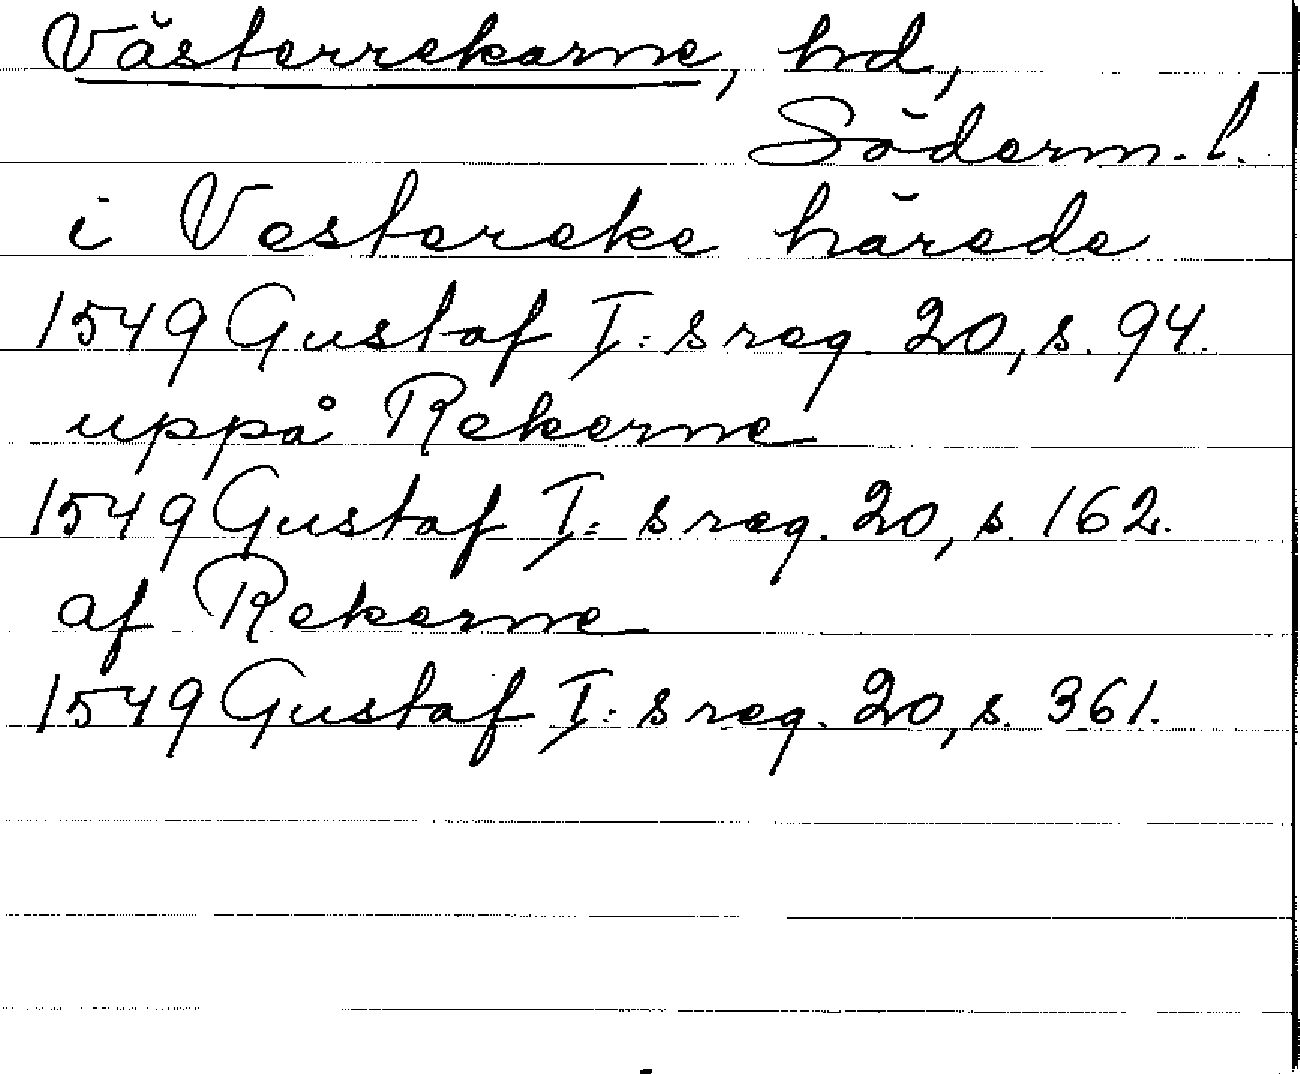 Västerrekarne, hd,
Söderm. l.
i Vestereke härede
1549 Gustaf I:s reg. 20, s. 94.
uppå Rekerne
1549 Gustaf I:s reg. 20, s. 162.
af Rekerne
1549 Gustaf I:s reg. 20, s. 361.